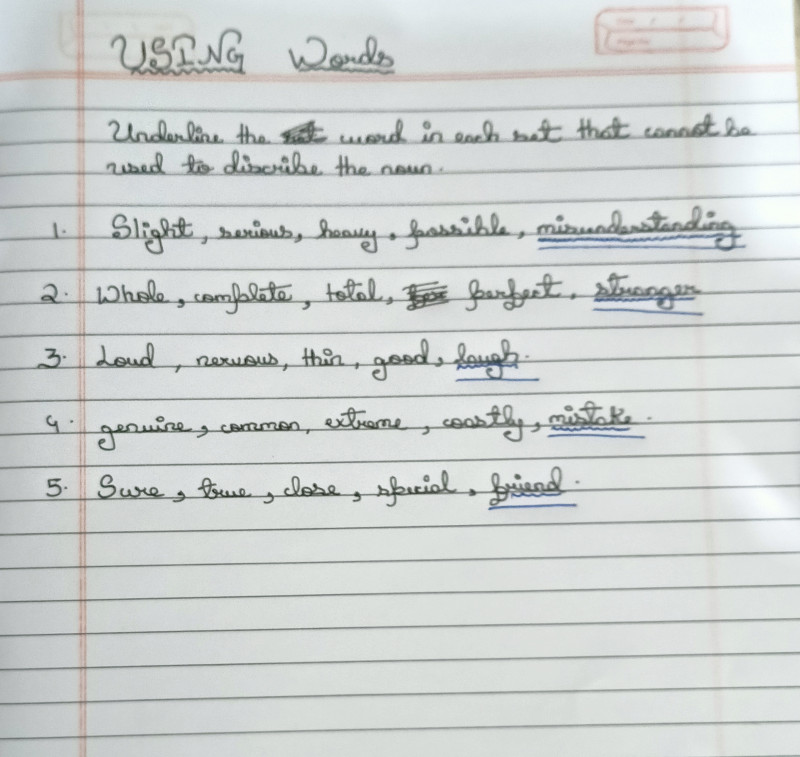 USING Words
Underline the word in each set that cannot be
used to discribe the noun.
1. Slight, serious, heavy, possible, misunderstanding
2. Whole, complete, total, perfect, stranger
3. Loud, nervous, thin, good, laugh.
4. genuine, common, extreme, coastly, mistake.
5. Sure, true, close, special, friend.